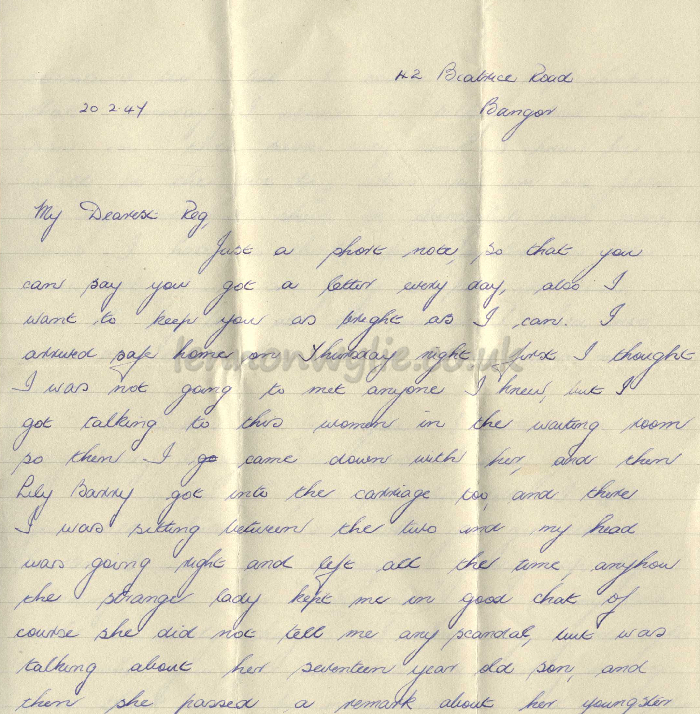 42 Beatrice Road
20.2.47
Bangor
My Dearest Reg,
Just a short note, so that you
can say you got a letter every day, also I
want to keep you as bright as I can. I
arrived safe home on Thursday night, first I thought
lennonwylie.co.uk
I was not going to met anyone I knew, but I
got talking to this women in the waiting room
so then I go came down with her, and then
Lily Barry got into the carriage too, and there
I was sitting between the two and my head
was going right and left all the time, anyhow
the strange lady kept me in good chat of
course she did not tell me any scandal, but was
talking about her seventeen year old son, and
then she passed a remark about her youngster